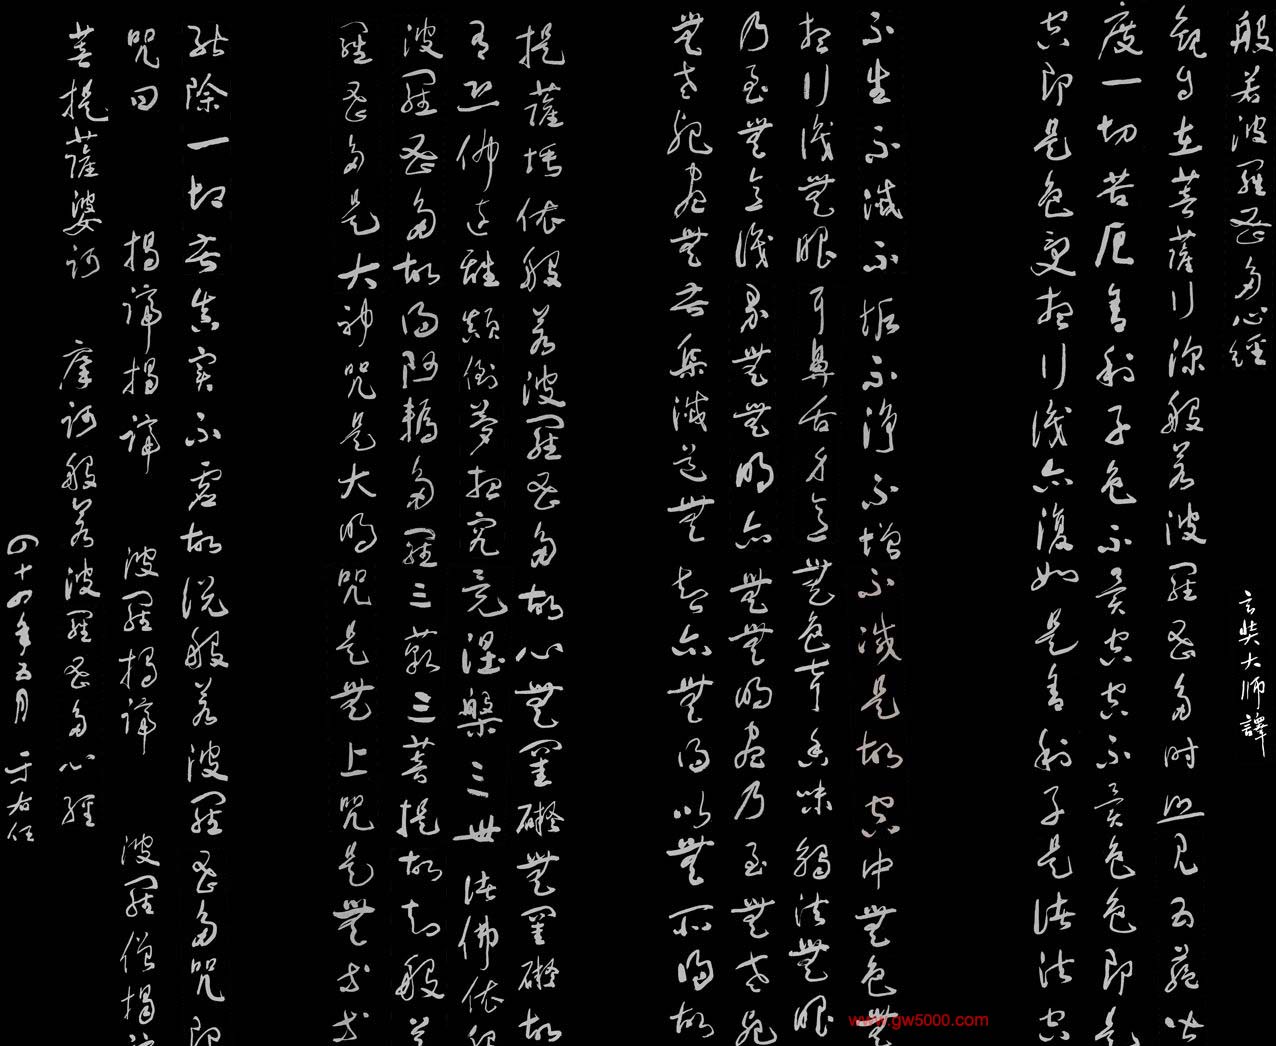 般若波羅蜜多心經
玄奘大師譯
觀自在菩薩行深般若波羅蜜多時照見五蘊皆
度一切苦厄舍利子色不異空空不異色色即是
空即是色受想行識亦復如是舍利子是諸法空
不生不滅不垢不淨不增不減是故空中無色無
想行識無眼耳鼻舌身意無色聲香味觸法無眼
乃至無意識界無無明亦無無明盡乃至無老死
無老死盡無苦集滅道無智亦無得以無所得故
提薩埵依般若波羅蜜多故心無罣礙無罣礙故
有恐怖遠離顛倒夢想究竟涅槃三世諸佛依般
波羅蜜多故得阿耨多羅三藐三菩提故知般若
羅蜜多是大神咒是大明咒是無上咒是無等等
能除一切苦真實不虛故說般若波羅蜜多咒即
咒曰 揭諦揭諦 波羅揭諦 波羅僧揭諦
菩提薩婆訶 摩訶般若波羅蜜多心經
四十四年五月 于右任
www.gw5000.com